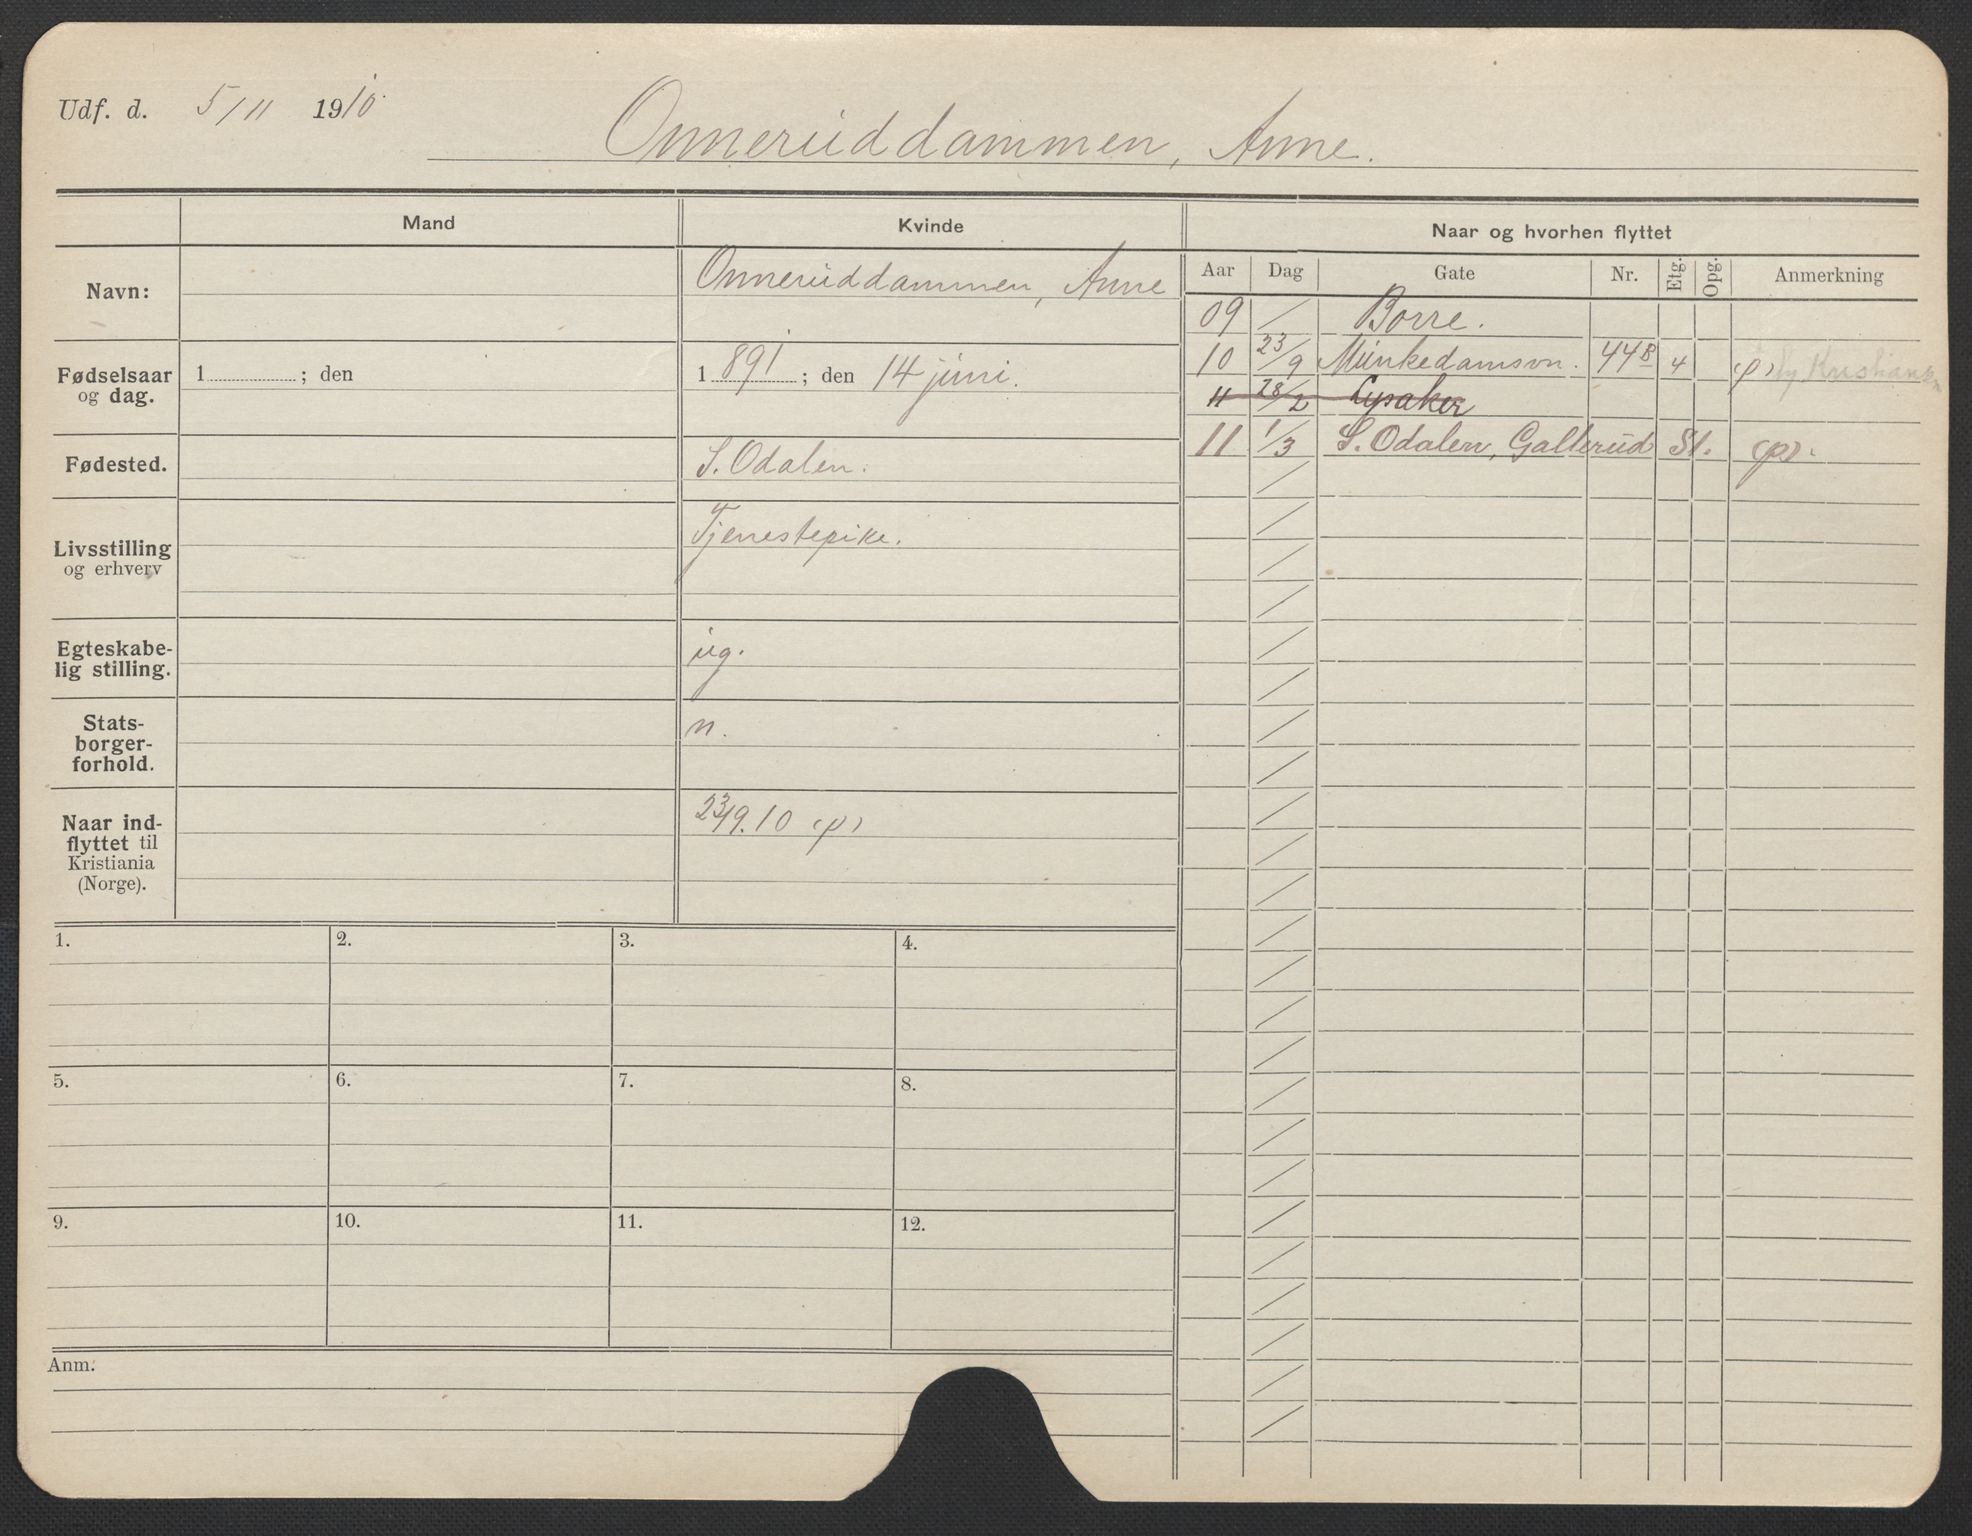 Udf. d. 5/11 1910.
Onneruddammen, Anne.
Mand Kvinde Naar og hvorhen flyttet
Aar Dag Gate Nr. Etg. Opg. Anmerkning
Navn: Onneruddammen, Anne
Fødselsaar og dag. 1 ; den 1 891 ; den 14 juni.
Fødested. S. Odalen.
Livsstilling og erhverv Tjenestepike.
Egteskabe-
lig stilling. ug.
Stats-
borger-
forhold. n.
Naar ind-
flyttet til
Kristiania
(Norge). 23/9.10 (p)
09 / Borre.
10 23/9 Munkedamsvn. 44B 4 (p)
11 28/2 Lysaker
11 1/3 S. Odalen, Gallerud St. (p).
1. 2. 3. 4.
5. 6. 7. 8.
9. 10. 11. 12.
Anm.